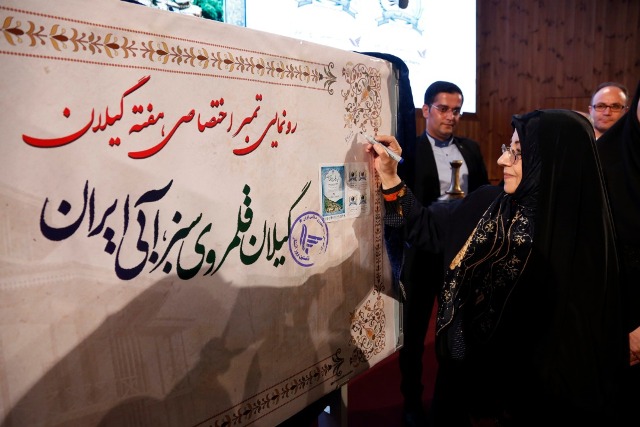 رونمایی تمبر اختصاصی هفته گیلان
گیلان قلمروی سبز، آبی ایران